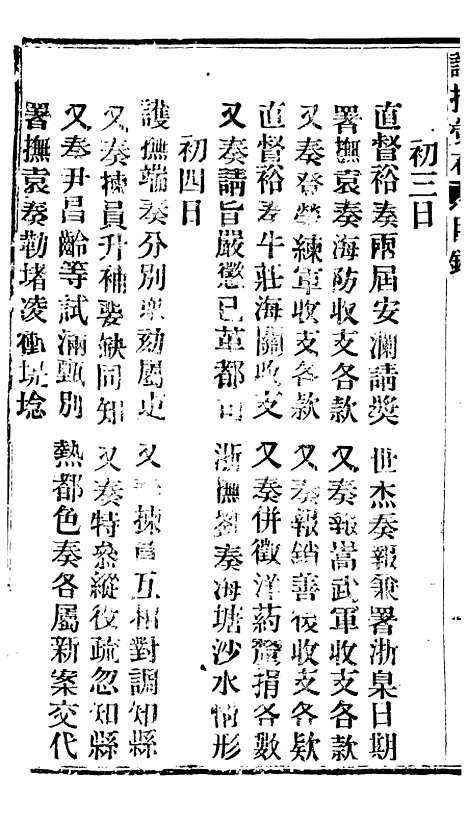 諭摺彙存 目錄
初三日
直督裕奏兩屆安瀾請獎 世杰奏報兼署浙臬日期
署撫袁奏海防收支各款 又奏報嵩武軍收支各款
又奏登榮練軍收支各款 又奏報銷善後收支各款
直督裕奏牛莊海關收支 又奏併徵洋药釐捐各數
又奏請旨嚴懲已革都司 浙撫劉奏海塘沙水情形
初四日
護撫端奏分別舉劾屬吏 又奏揀員互相對調知縣
又奏揀員升補要缺同知 又奏特參縱役疏忽知縣
又奏尹昌齡等試滿甄別 熱都色奏各屬新案交代
署撫袁奏勒堵凌衝堤埝